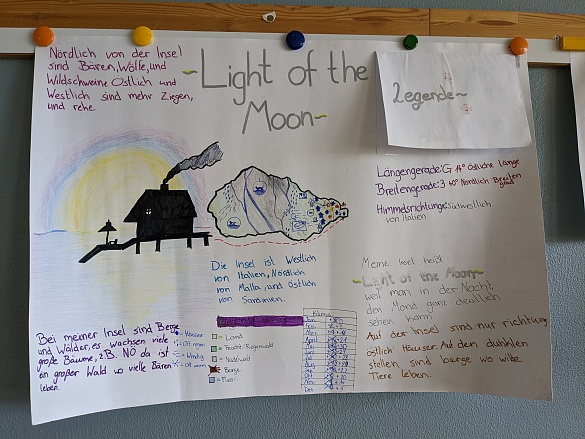 Nördlich von der Insel
sind Bären, Wölfe, und
Wildschweine Östlich und
Westlich sind mehr Ziegen,
und rehe.
~Light of the
Moon~
Legende~
Längengerade: G 11° östliche Länge
Breitengerade: 3 40° Nördlich Breiten
grad
Himmelsrichtung: südwestlich
von Italien
Die Insel ist Westlich
von Italien, Nördlich
von Malta, und Östlich
von Sardinien.
Meine Insel heißt
~Light of the Moon~
weil man in der Nacht
den Mond ganz deutlich
sehen kann
Auf der Insel sind nur richtung
östlich Häuser. Auf den dunklen
stellen sind berge wo wilde
Tiere leben.
Bei meiner Insel sind Berge
und Wälder, es wachsen viele
große Bäume, z.B. NO da ist
ein großer Wald wo viele Bären
leben.
- Häuser
- Windig
- Land
- Nadelwald
- Berge
- Fluss